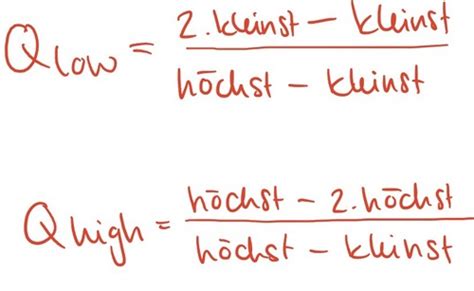 Qlow = 2.kleinst – kleinst
höchst – kleinst
Qhigh = höchst – 2.höchst
höchst – kleinst